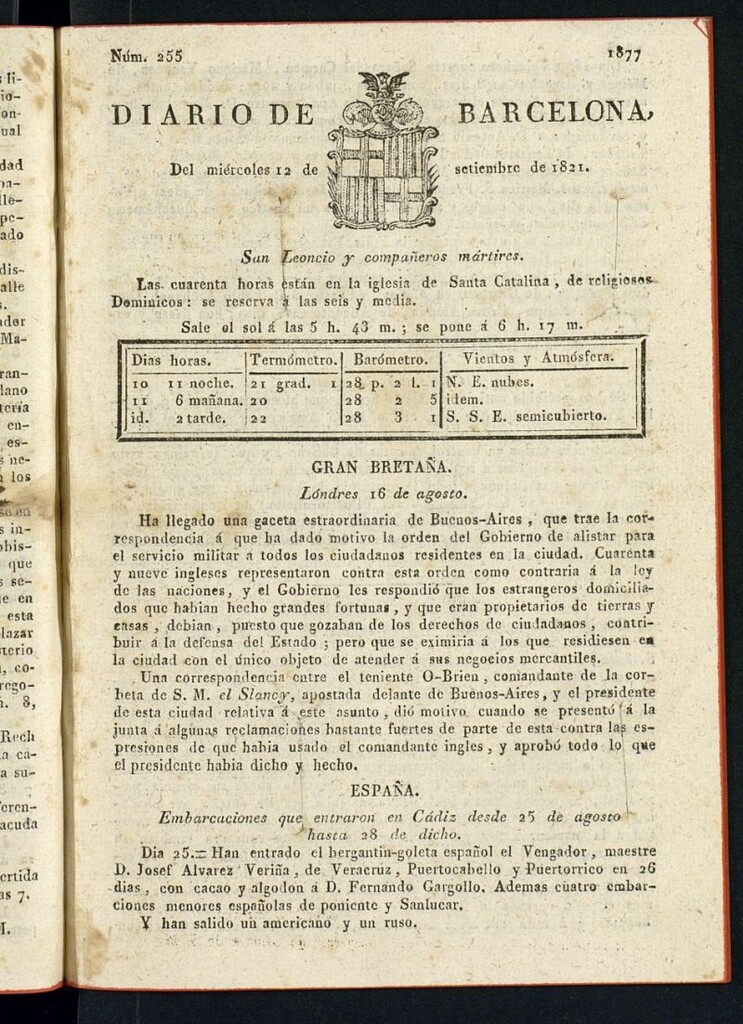 Núm. 255 1877
DIARIO DE BARCELONA,
Del miércoles 12 de setiembre de 1821.
San Leoncio y compañeros mártires.
Las cuarenta horas están en la iglesia de Santa Catalina, de religiosos
Dominicos: se reserva á las seis y media.
Sale el sol á las 5 h. 43 m.; se pone á 6 h. 17 m.
Dias horas. Termómetro. Barómetro. Vientos y Atmósfera.
10 11 noche. 21 grad. 1 28 p. 2 l. 1 N. E. nubes.
11 6 mañana. 20 28 2 5 idem.
id. 2 tarde. 22 28 3 1 S. S. E. semicubierto.
GRAN BRETAÑA.
Lóndres 16 de agosto.
Ha llegado una gaceta estraordinaria de Buenos-Aires, que trae la cor-
respondencia á que ha dado motivo la orden del Gobierno de alistar para
el servicio militar a todos los ciudadanos residentes en la ciudad. Cuarenta
y nueve ingleses representaron contra esta orden como contraria á la ley
de las naciones, y el Gobierno les respondió que los estrangeros domicilia-
dos que habian hecho grandes fortunas, y que eran propietarios de tierras y
casas, debian, puesto que gozaban de los derechos de ciudadanos, contri-
buir á la defensa del Estado; pero que se eximiria á los que residiesen en
la ciudad con el único objeto de atender á sus negocios mercantiles.
Una correspondencia entre el teniente O-Brien, comandante de la cor-
beta de S. M. el Slancy, apostada delante de Buenos-Aires, y el presidente
de esta ciudad relativa á este asunto, dió motivo cuando se presentó á la
junta á algunas reclamaciones bastante fuertes de parte de esta contra las es-
presiones de que habia usado el comandante ingles, y aprobó todo lo que
el presidente habia dicho y hecho.
ESPAÑA.
Embarcaciones que entraron en Cádiz desde 25 de agosto
hasta 28 de dicho.
Dia 25.= Han entrado el bergantin-goleta español el Vengador, maestre
D. Josef Alvarez Veriña, de Veracruz, Puertocabello y Puertorrico en 26
dias, con cacao y algodon á D. Fernando Gargollo. Ademas cuatro embar-
ciones menores españolas de poniente y Sanlucar.
Y han salido un americano y un ruso.